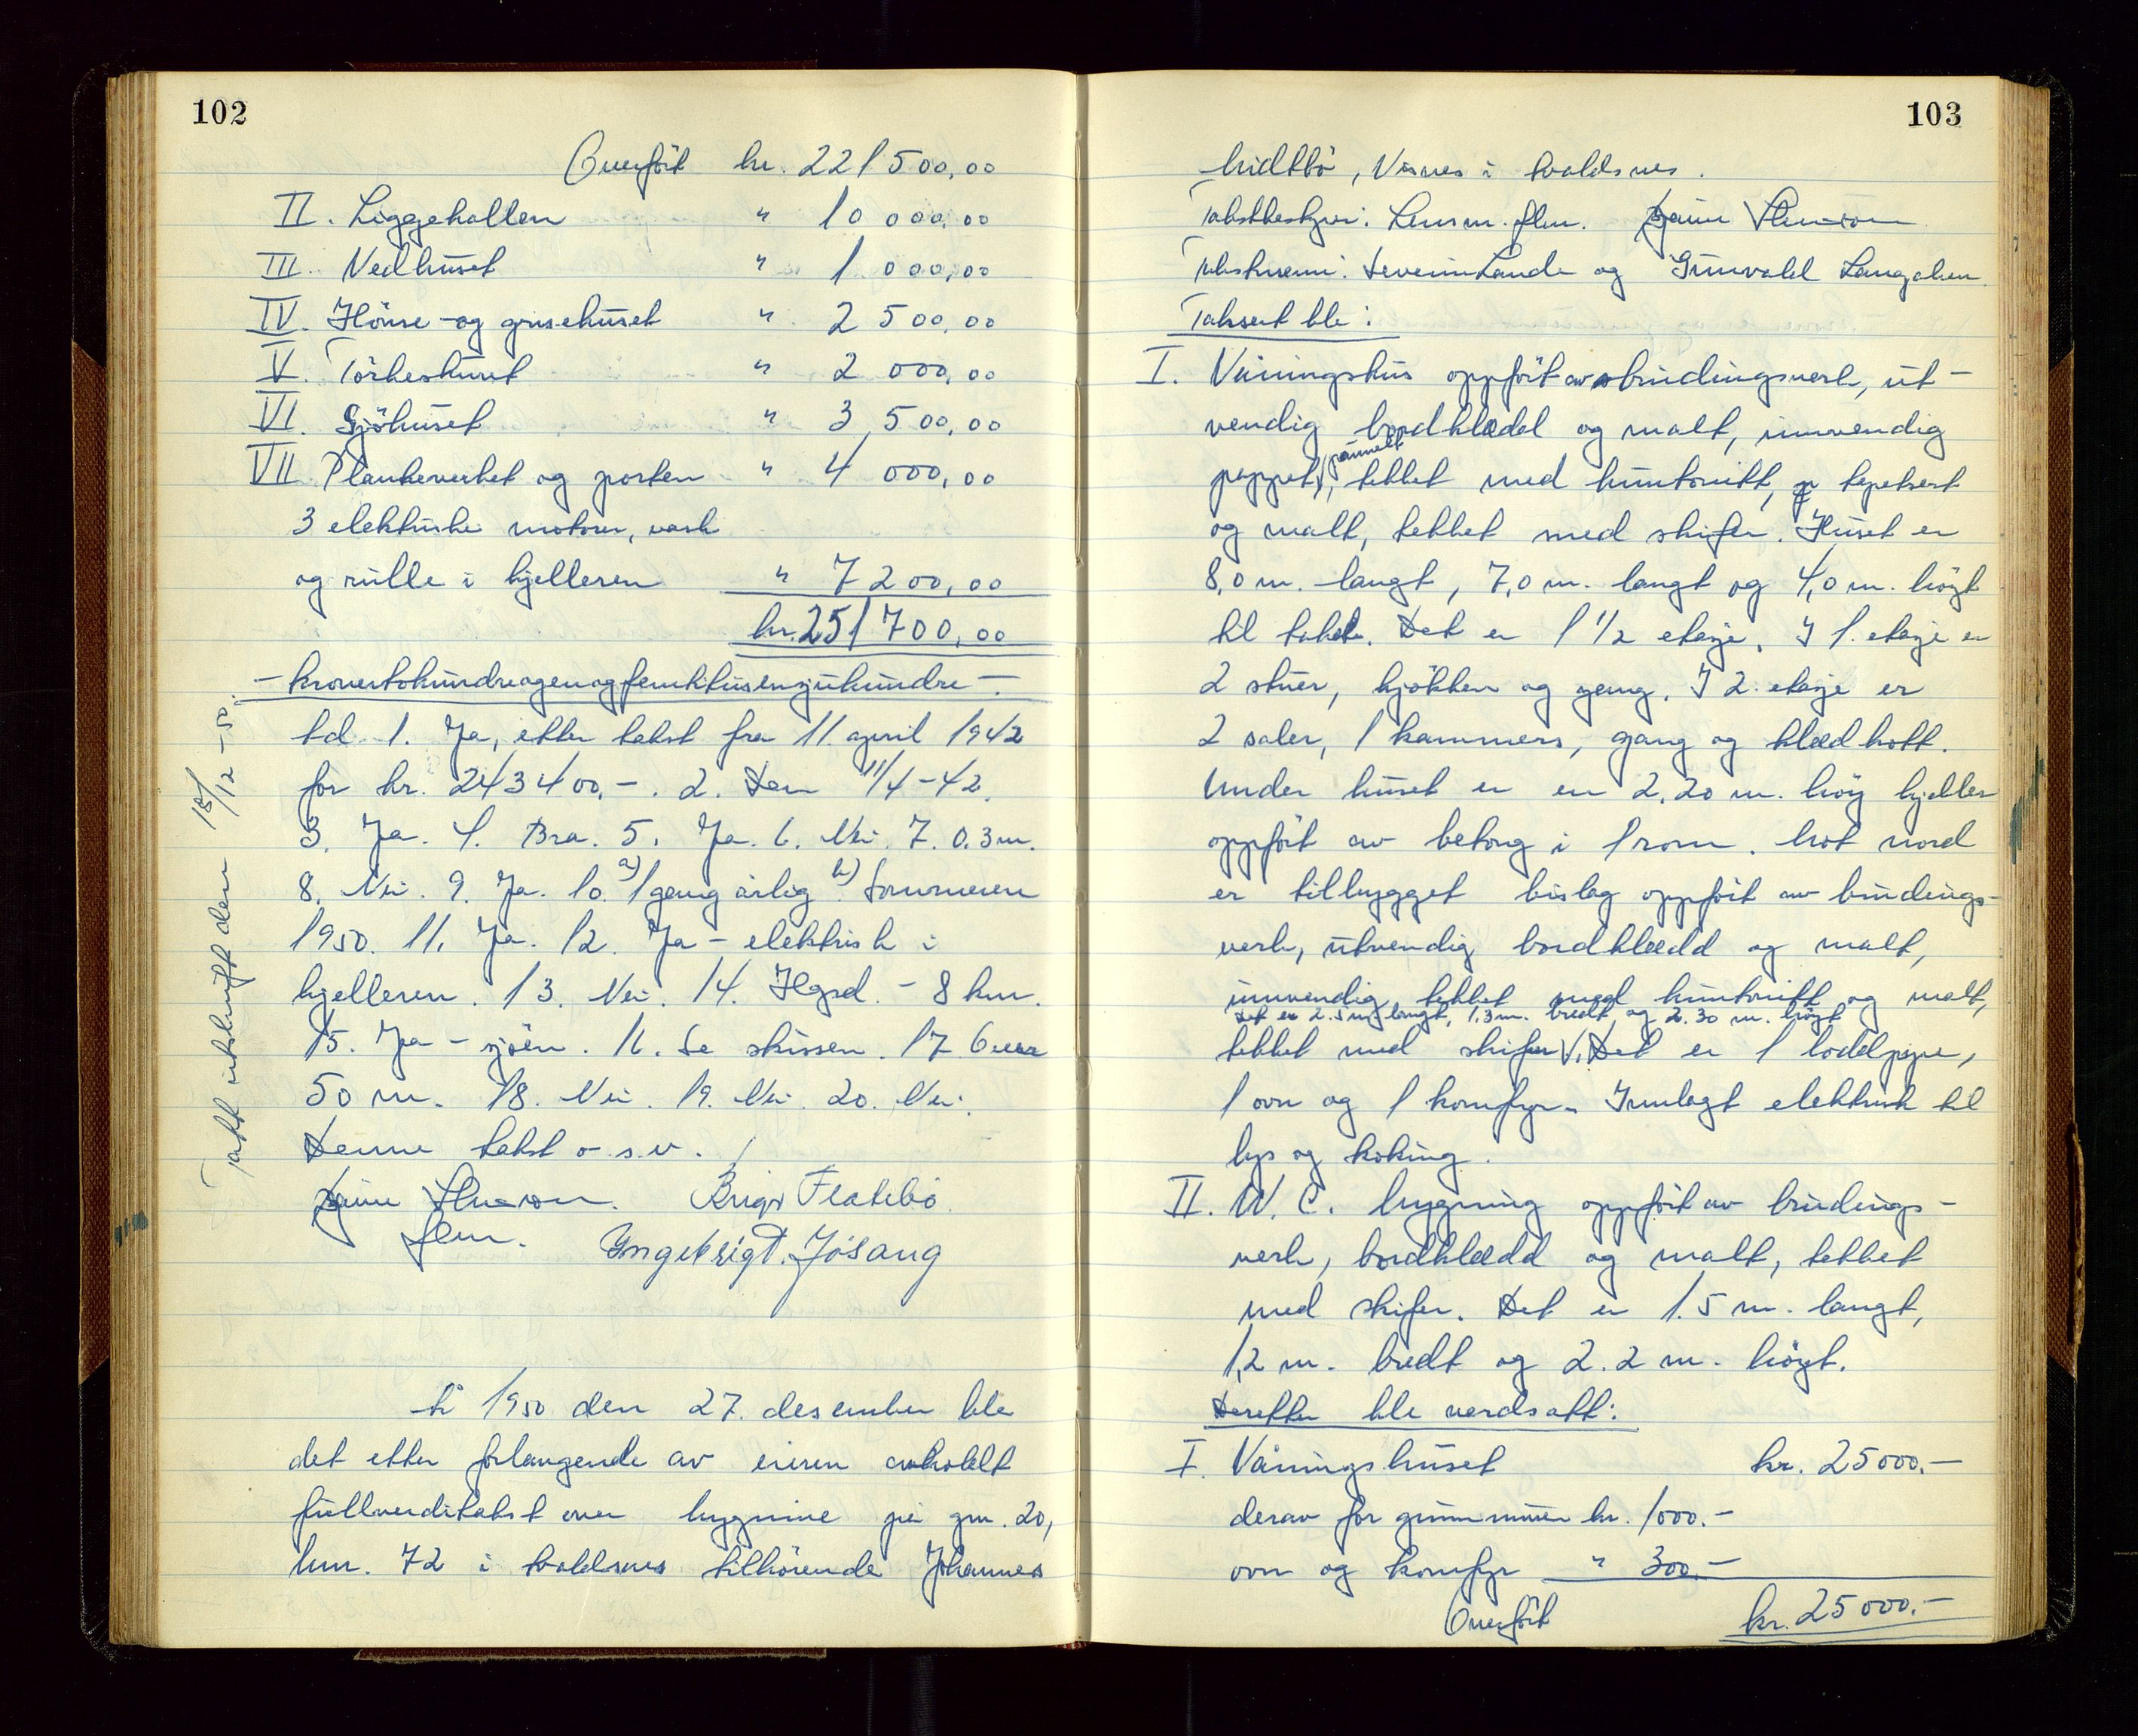 102
Overført kr. 221 500,00
II. Liggehallen " 10 000,00
III. Vedhuset " 1 000,00
IV. Hönse- og grisehuset " 2 500,00
V. Törkeskuret " 2 000,00
VI. Sjöhuset " 3 500,00
VII Plankeverket og porten " 4 000,00
3 elektriske motorer, vask
og rulle i kjelleren " 7 200,00
kr. 251 700,00
- kronertohundreogenogfemtitusensjuhundre -
td. 1. Ja, etter takst fra 11. april 1942
for kr. 243 400,-. 2. Den 11/4-42.
3. Ja. 4. Bra. 5. Ja. 6. Nei. 7. 0.3 m.
8. Nei. 9. Ja. 10. a) 1 gang årlig b) Sommeren
1950. 11. Ja. 12. Ja - elektrisk i
kjelleren. 13. Nei. 14. Hgsd. - 8 km.
15. Ja - sjöen. 16. Se skissen. 17 Over
50 m. 18. Nei. 19. Nei. 20. Nei.
Denne takst o.s.v.
Brigt Flatebö
flm. Yngebrigt. Jösang
Tatt utskrift den 18/12-50.
År 1950 den 27. desember ble
det etter forlangende av eieren avholdt
fullverditakst over bygnine på gnr. 20,
bnr. 72 i Avaldsnes tilhörende Johannes
103
Midtbö, Visnes i Avaldsnes.
Takstbestyrer: Lensm. flm.
Takstmenn: Severin Lande og Gunvald Langaker.
Taksert ble:
I. Våningshus oppfört av bindingsverk, ut-
vendig bordklædd og malt, innvendig
pappet, pannelt, tekket med huntonitt, tapetsert
og malt, tekket med skifer. Huset er
8,0 m. langt, 7,0 m. langt og 4,0 m. högt
til taket. Det er 1 1/2 etasje. I 1. etasje er
2 stuer, kjökken og gang. I 2. etasje er
2 saler, 1 kammers, gang og klædkott.
Under huset er en 2,20 m. höy kjeller
oppfört av betong i 1 rom. Mot nord
er tilbygget bislag oppfört av bindings-
verk, utvendig bordklædd og malt,
innvendig tekket med huntonitt og malt,
Det er 2.5 m. langt, 1.3 m. bredt og 2.30 m. högt
tekket med skifer V. Det er 1 loddpipe,
1 ovn og 1 komfyr. Innlagt elektrisk til
lys og koking.
II. W.C. bygning oppfört av bindings-
verk, bordklædd og malt, tekket
med skifer. Det er 1.5 m. langt,
1,2 m. bredt og 2.2 m. högt.
Deretter ble verdsatt:
I. Våningshuset kr. 25000.-
derav for grunnmur kr. 1000.-
ovn og komfyr " 300.-
Overfört kr. 25000.-